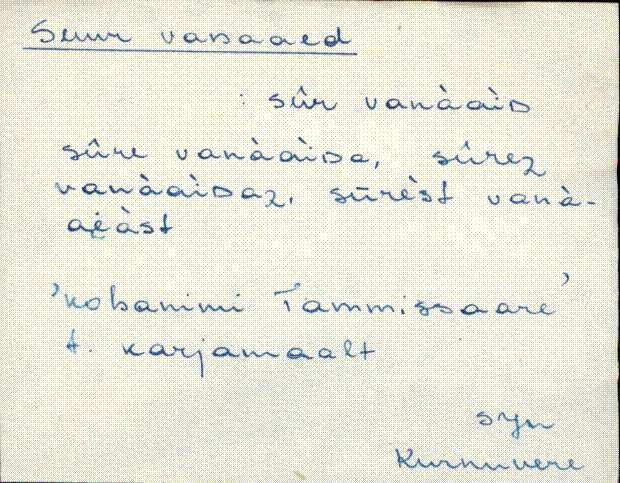 Suur vanaaed
: sûr vanàaìD
sûre vanàaìDa, sûrez
vanàaìDaz, sūrèst vanà-
aèàst
'kohanimi Tammissaare'
t. karjamaalt
Syn
Kurnuvere